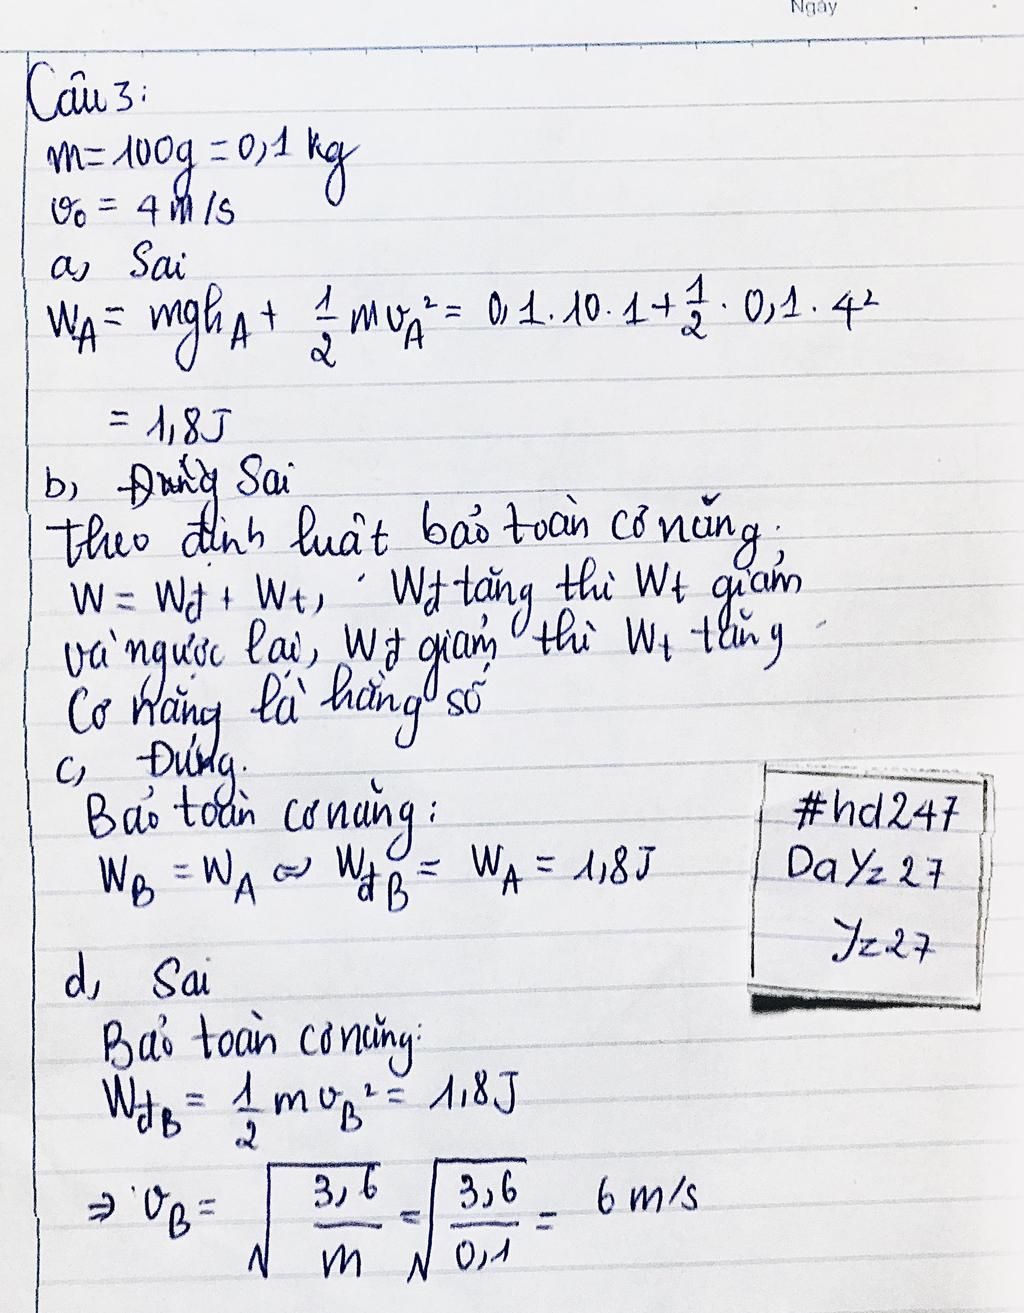 Ngày
Câu 3:
m = 100g = 0,1 kg
v₀ = 4 m/s
a, Sai
W_A = mgh_A + 1/2 mv_A² = 0,1.10.1 + 1/2 . 0,1 . 4²
= 1,8J
b, Đúng Sai
Theo định luật bảo toàn cơ năng:
W = Wđ + Wt, Wđ tăng thì Wt giảm
và ngược lại, Wđ giảm thì Wt tăng
Cơ năng là hằng số
c, Đúng.
Bảo toàn cơ năng:
W_B = W_A ⇔ Wđ_B = W_A = 1,8J
#hd247
DaYz27
Yz27
d, Sai
Bảo toàn cơ năng:
Wđ_B = 1/2 mv_B² = 1,8J
⇒ v_B = √(3,6/m) = √(3,6/0,1) = 6 m/s